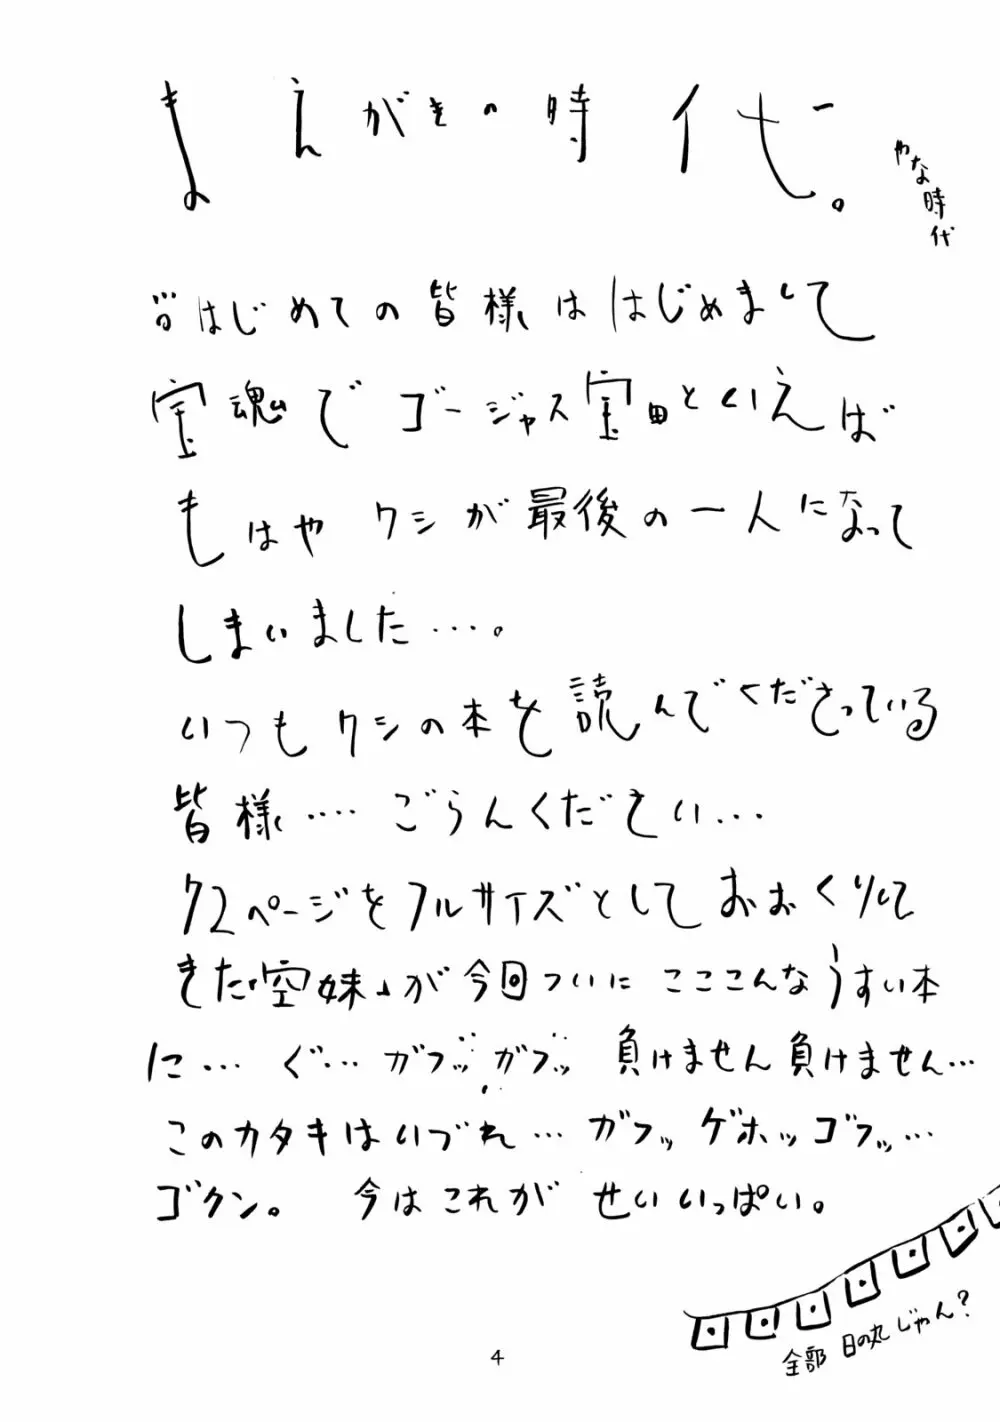 まえがきの時代。
やな時代
はじめての皆様は はじめまして
宝魂で ゴージャス宝田といえば
もはや クシが最後の一人になって
しまいました…。
いつもクシの本を読んでくださっている
皆様‥‥ ごらんください…
72ページをフルサイズとしておおくりして
きた「空妹」が今回ついに こここんなうすい本
に… ぐ… ガフッ ガフッ 負けません負けません…
このカタキはいづれ… ガフッ ゲホッゴフッ…
ゴクン。 今はこれが せいいっぱい。
全部 日の丸じゃん?
4